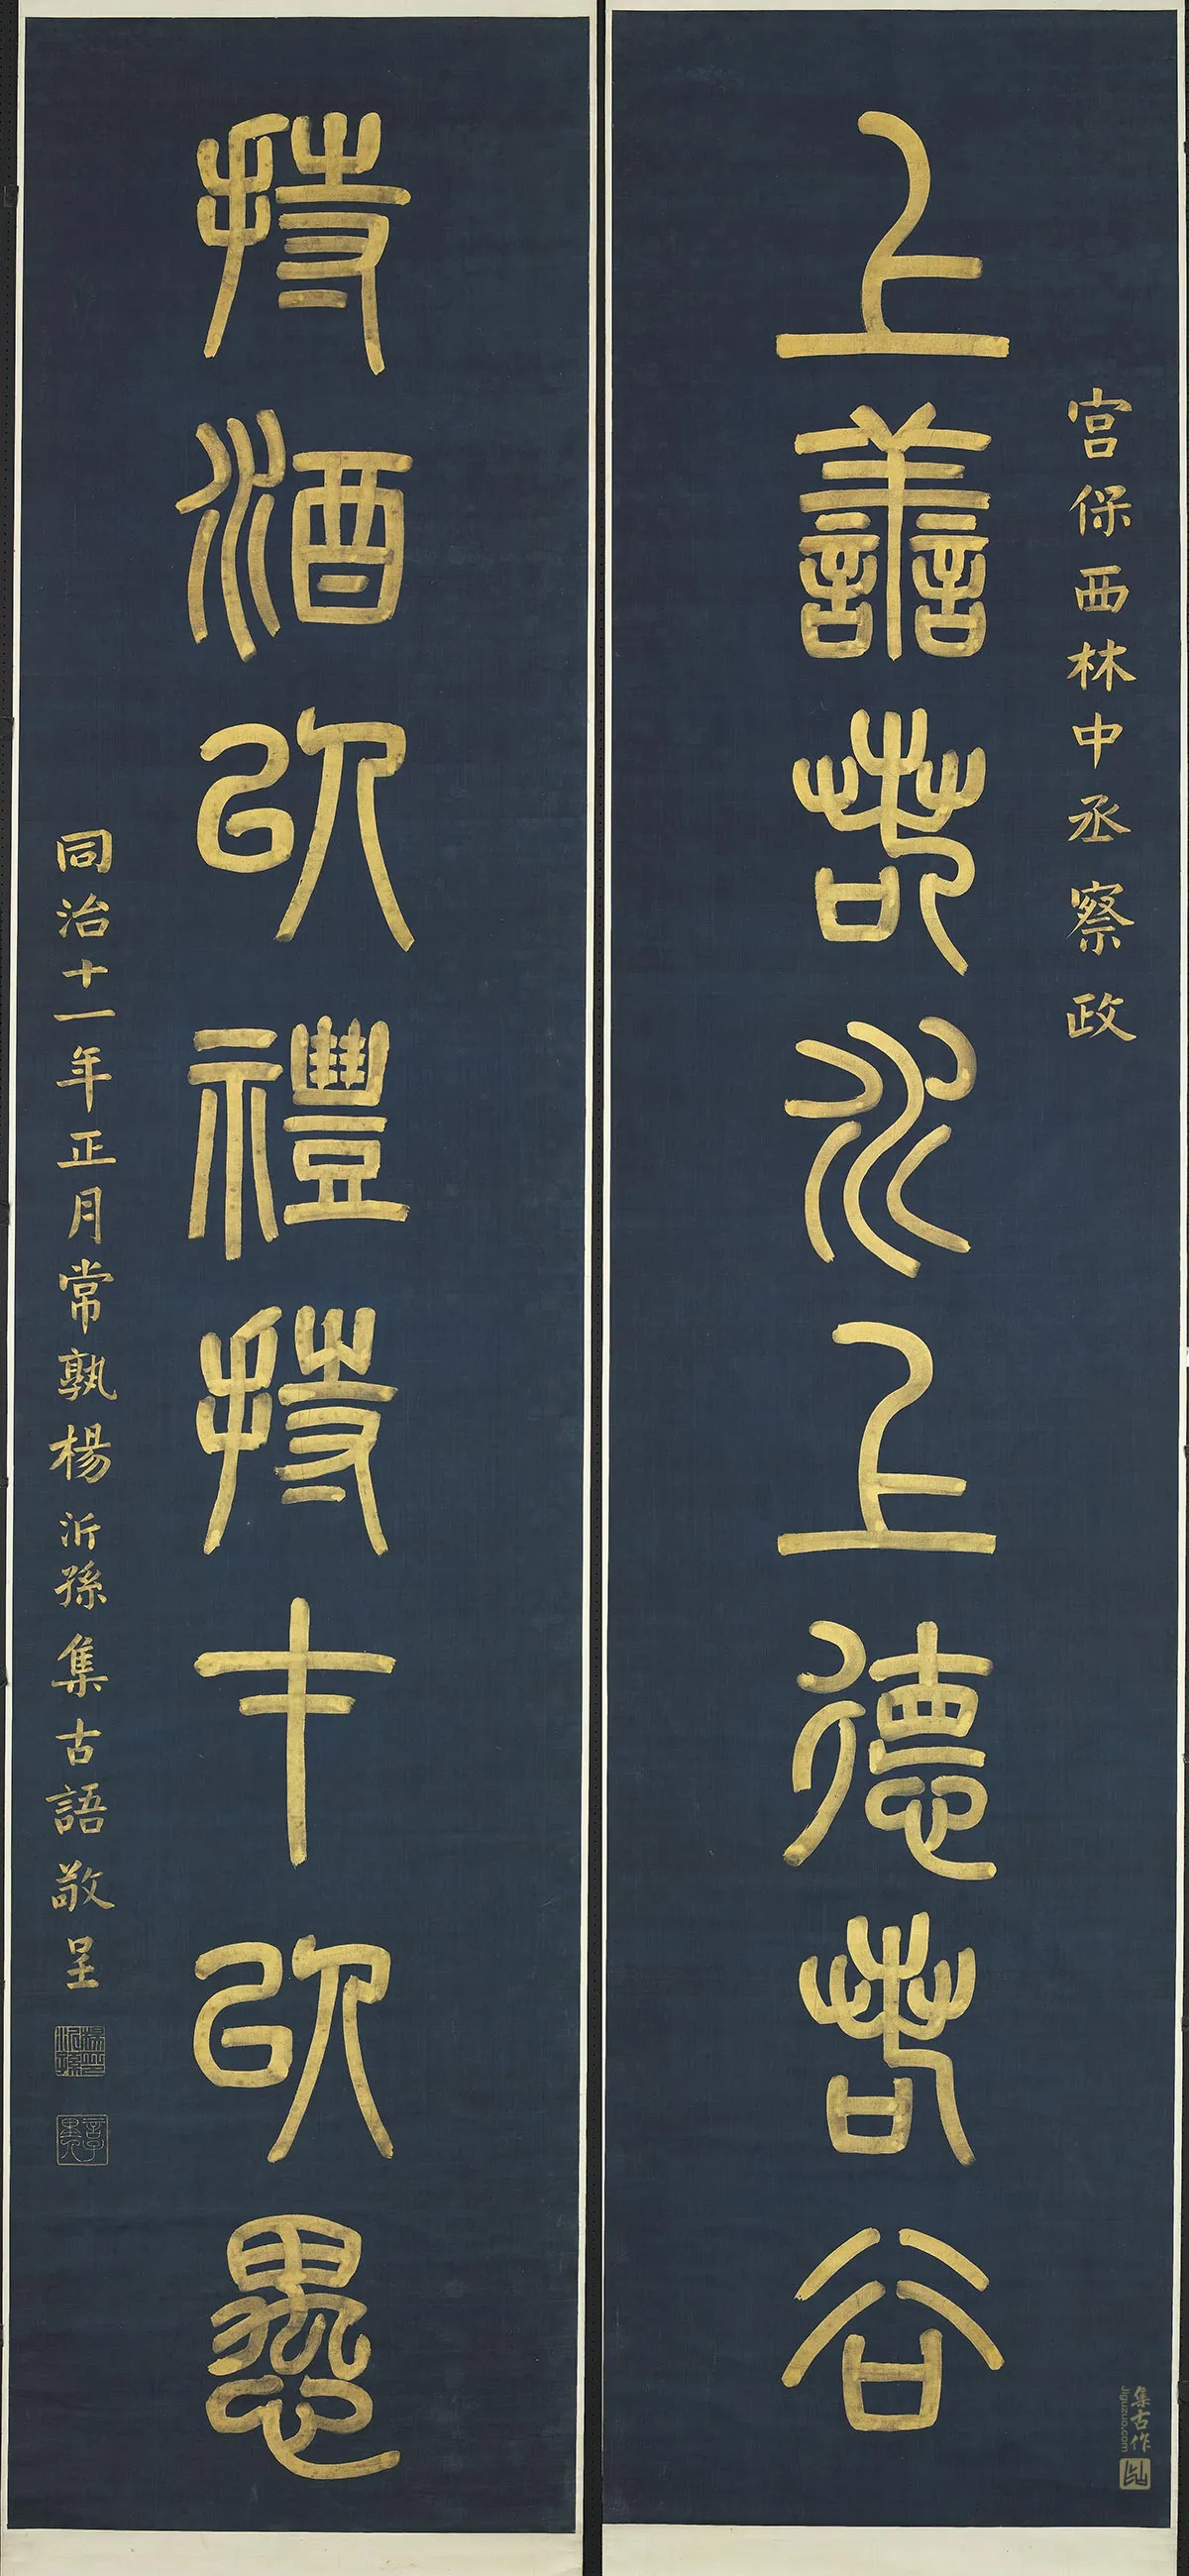 宮保西林中丞察政
上善若水上德若谷
持酒以禮持才以愚
同治十一年正月常孰楊沂孫集古語敬呈
楊沂孫印
集古作
Jiguzuo.com